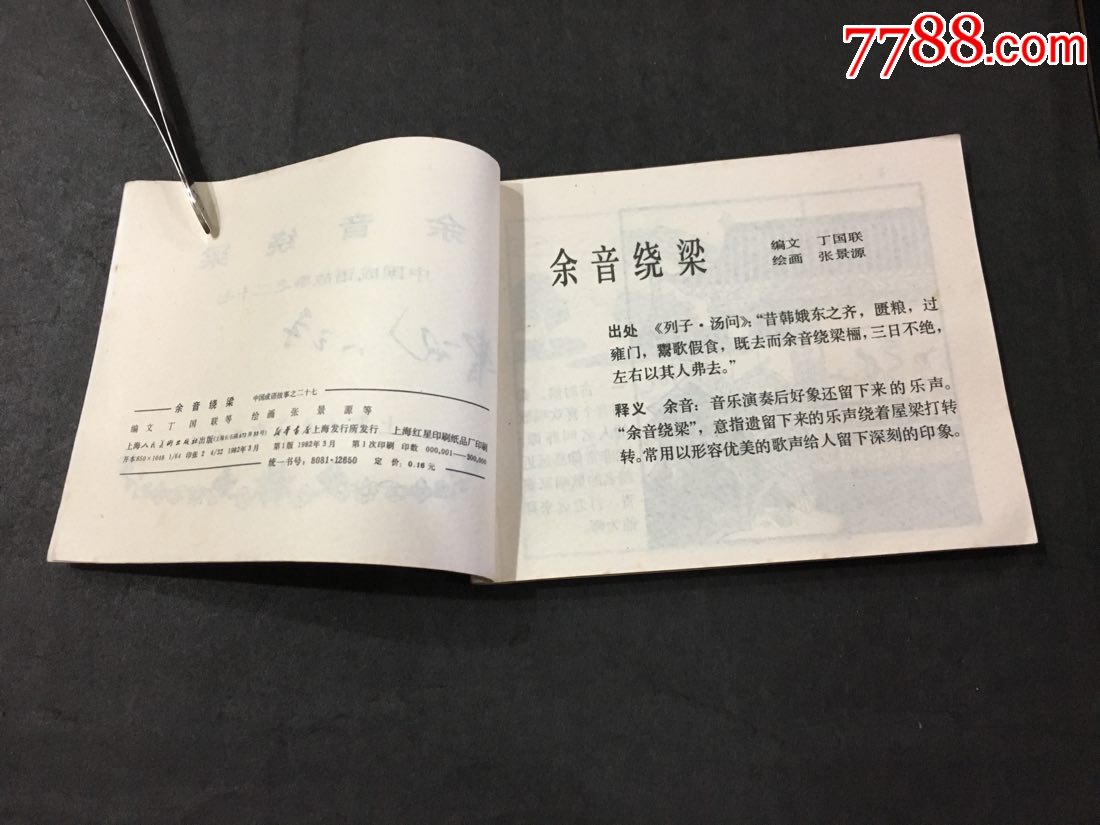 7788.com
余音绕梁
中国成语故事之二十七
编文 丁国联等 绘画 张景源等
上海人民美术出版社出版(上海长乐路672弄33号) 新华书店上海发行所发行 上海红星印刷纸品厂印刷
开本850×1048 1/64 印张 2 4/32 1982年3月 第1版 1982年3月 第1次印刷 印数 000,001—300,000
统一书号:8081·12650 定价:0.16元
余音绕梁
编文 丁国联
绘画 张景源
出处 《列子·汤问》:“昔韩娥东之齐,匮粮,过
雍门,鬻歌假食,既去而余音绕梁欐,三日不绝,
左右以其人弗去。”
释义 余音:音乐演奏后好象还留下来的乐声。
“余音绕梁”,意指遗留下来的乐声绕着屋梁打转
转。常用以形容优美的歌声给人留下深刻的印象。